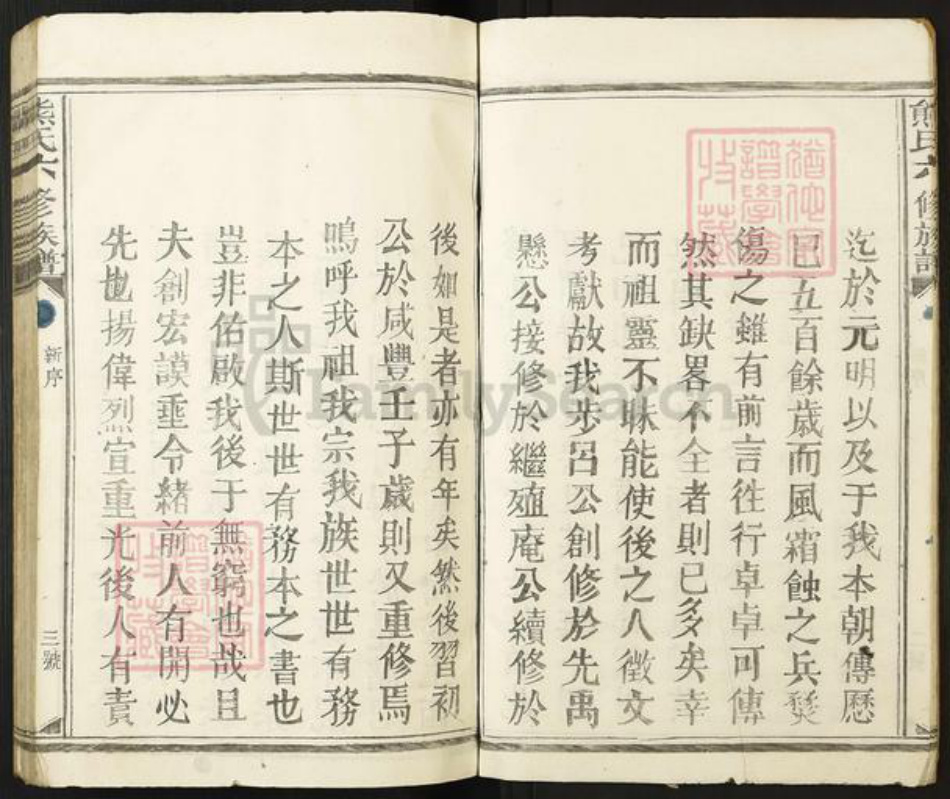 熊氏六修族譜
迄於元明以及于我本朝傳歷
已五百餘歲而風霜蝕之兵燹
傷之雖有前言徃行卓卓可傳
然其缺畧不全者則已多矣幸
而祖靈不昧能使後之人徵文
考獻故我步呂公創修於先禹
懸公接修於繼殖庵公續修於
後如是者亦有年矣然後習初
公於咸豐壬子歲則又重修焉
嗚呼我祖我宗我族世世有務
本之人斯世世有務本之書也
豈非佑啟我後于無窮也哉且
夫創宏謨垂令緒前人有開必
先也揚偉烈宣重光後人有責
熊氏六修族譜
新序
三號
FamilySearch